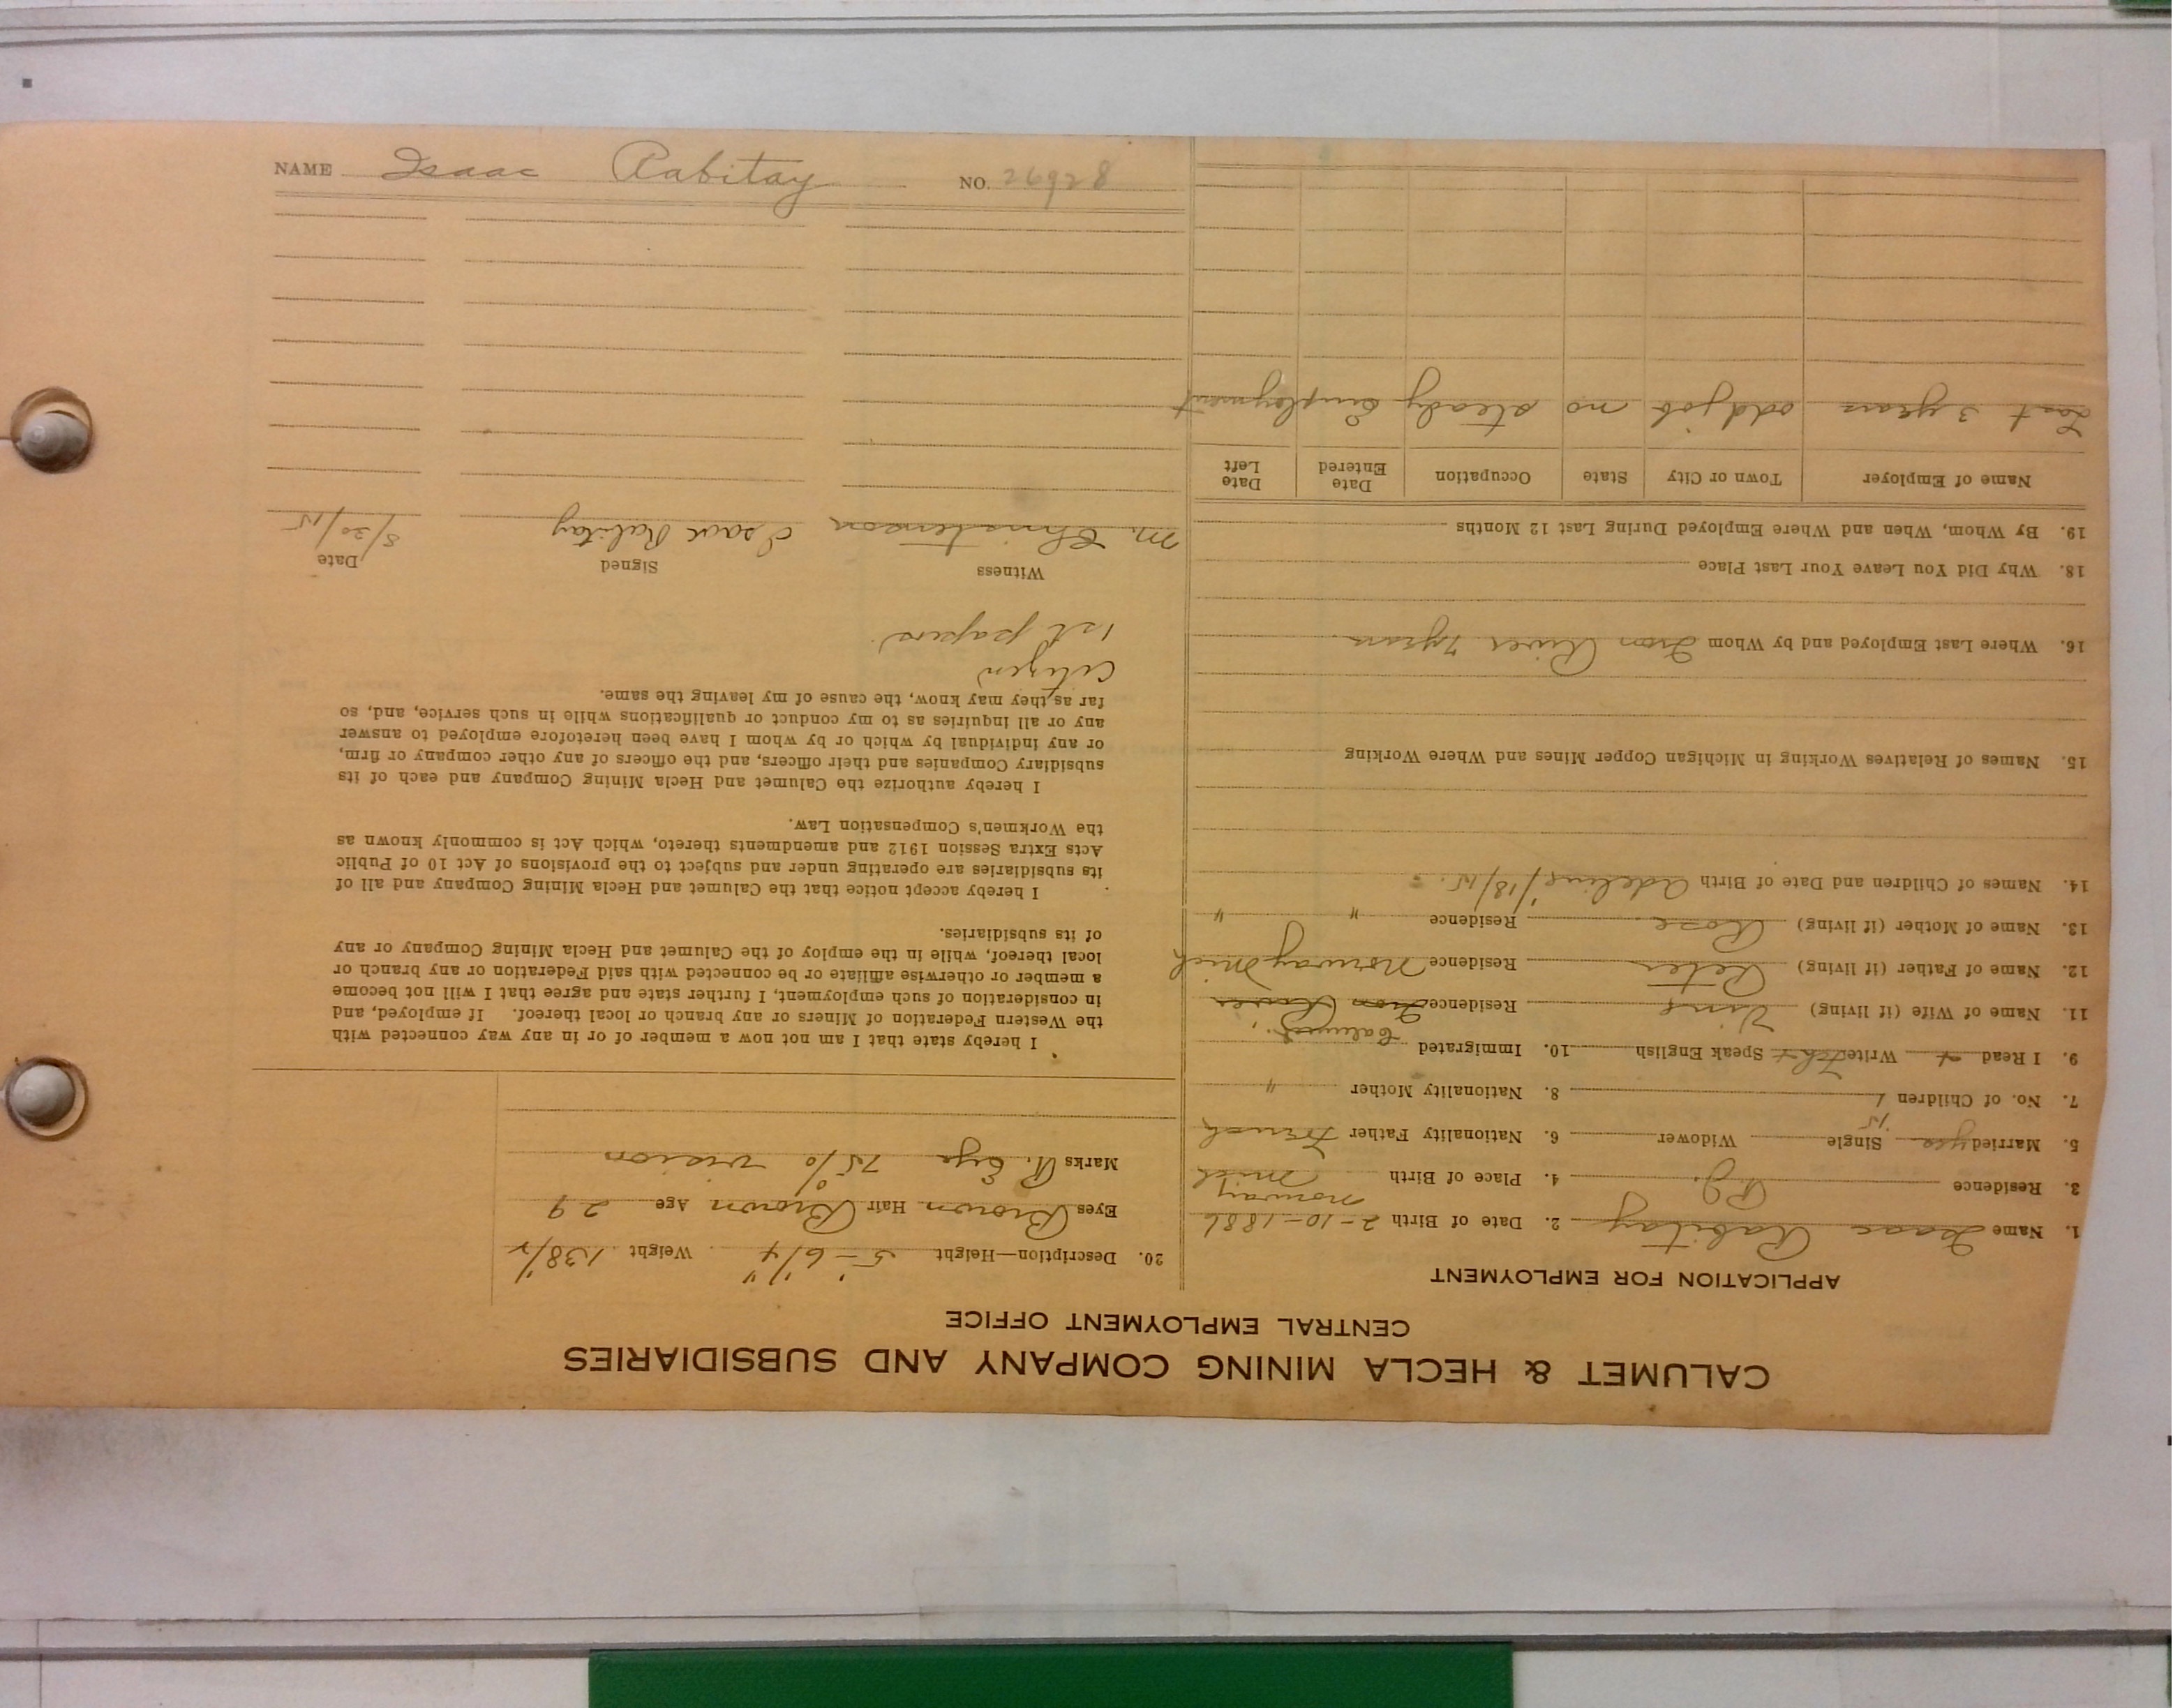 CALUMET & HECLA MINING COMPANY AND SUBSIDIARIES
CENTRAL EMPLOYMENT OFFICE
APPLICATION FOR EMPLOYMENT
1. Name Isaac Rabitay 2. Date of Birth 2-10-1886
3. Residence 4. Place of Birth Norway Mich
5. Married yes Single Widower 6. Nationality Father French
7. No. of Children 1 8. Nationality Mother "
9. I Read Write Speak English 10. Immigrated
11. Name of Wife (if living) Residence Iron River Calumet
12. Name of Father (if living) Peter Residence Norway Mich
13. Name of Mother (if living) Rose Residence " "
14. Names of Children and Date of Birth Adeline 1/18/15.
15. Names of Relatives Working in Michigan Copper Mines and Where Working
16. Where Last Employed and by Whom Iron River 7 years
18. Why Did You Leave Your Last Place
19. By Whom, When and Where Employed During Last 12 Months
Name of Employer Town or City State Occupation Date Entered Date Left
Last 3 years odd job no steady Employment
20. Description—Height 5-6 1/4" Weight 138 1/2
Eyes Brown Hair Brown Age 29
Marks R. Eye 75% vision
I hereby state that I am not now a member of or in any way connected with
the Western Federation of Miners or any branch or local thereof. If employed, and
in consideration of such employment, I further state and agree that I will not become
a member or otherwise affiliate or be connected with said Federation or any branch or
local thereof, while in the employ of the Calumet and Hecla Mining Company or any
of its subsidiaries.
I hereby accept notice that the Calumet and Hecla Mining Company and all of
its subsidiaries are operating under and subject to the provisions of Act 10 of Public
Acts Extra Session 1912 and amendments thereto, which Act is commonly known as
the Workmen's Compensation Law.
I hereby authorize the Calumet and Hecla Mining Company and each of its
subsidiary Companies and their officers, and the officers of any other company or firm,
or any individual by which or by whom I have been heretofore employed to answer
any or all inquiries as to my conduct or qualifications while in such service, and, so
far as they may know, the cause of my leaving the same.
Citizen
1st papers
Witness Signed Date
M. Christenson Isaac Rabitay 8/30/15
NAME Isaac Rabitay NO. 26928